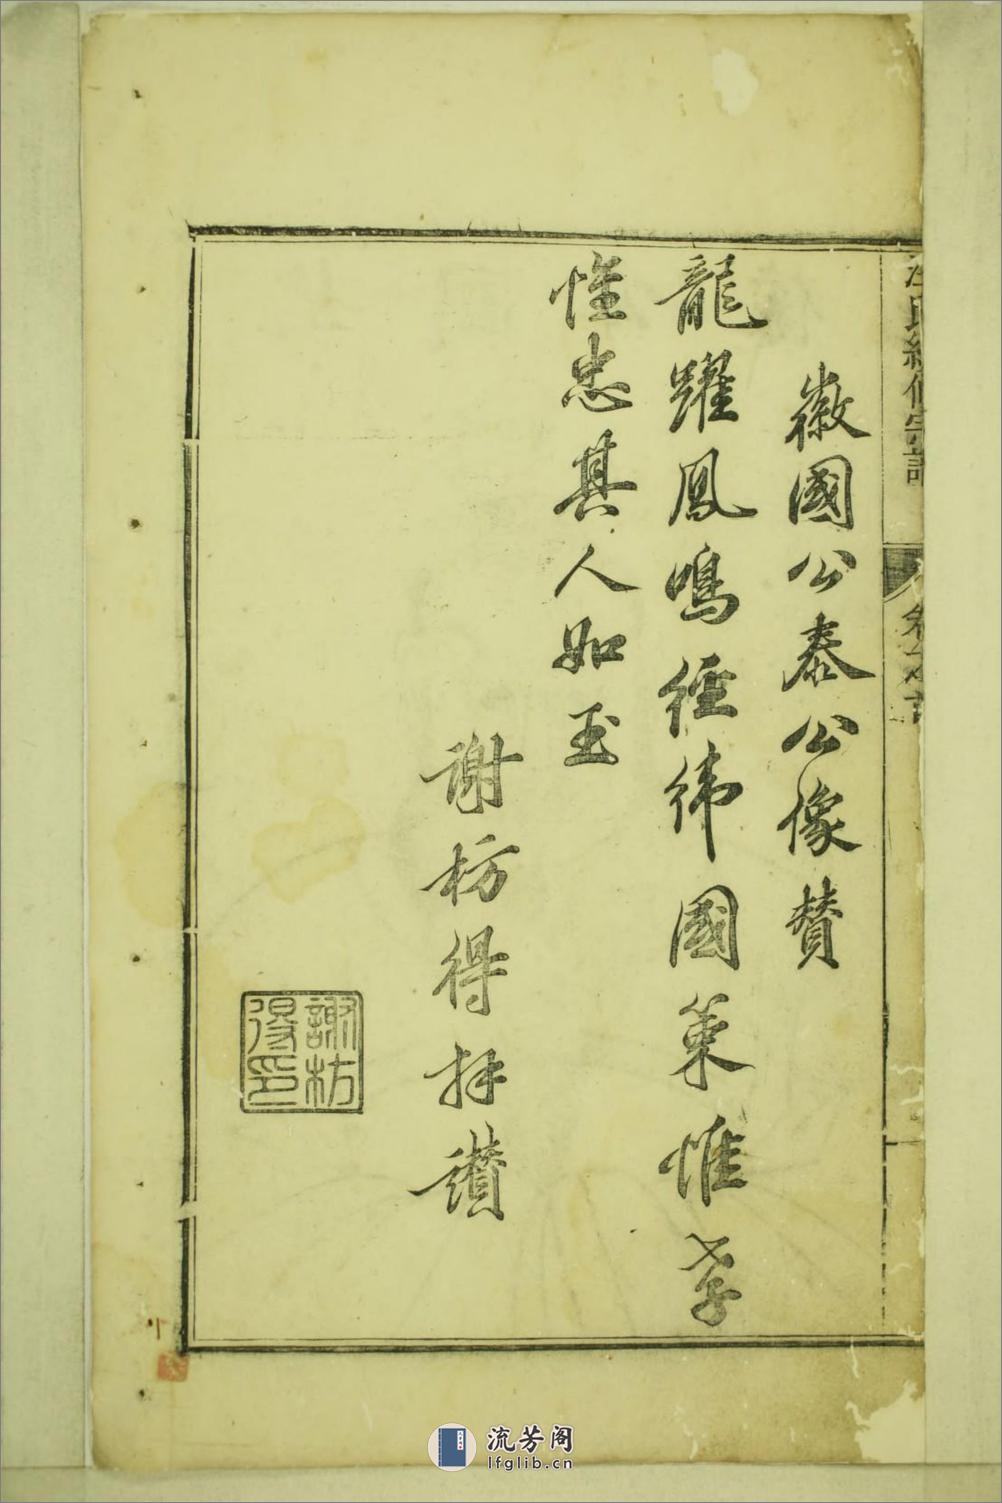 徽國公泰公像贊
龍躍鳳鳴經緯國策惟孝
惟忠其人如玉
謝枋得拜讚
謝枋得印
氏統宗譜
流芳阁
lfglib.cn